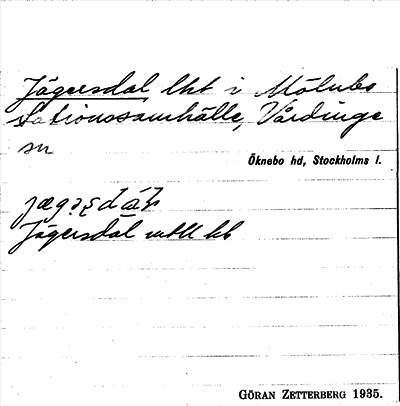 Jägersdal lht i Mölnbo
stationssamhälle, Vårdinge
sn
Öknebo hd, Stockholms l.
Jägersdal
GÖRAN ZETTERBERG 1935.